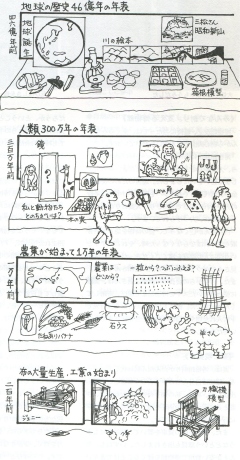 地球の歴史46億年の年表
四六億年前
地球誕生
川の絵本
三松さん
昭和新山
箱根模型
人類300万年の年表
三百万年前
鏡
？
私と動物たち
とのちがいは？
木の実
しかの角
農業が始まって1万年の年表
一万年前
農業は
どこから？
一粒から？つぶにふえる？
石ウス
たねありバナナ
羊さん
布の大量生産・工業の始まり
二百年前
ジェニー
力織機
模型